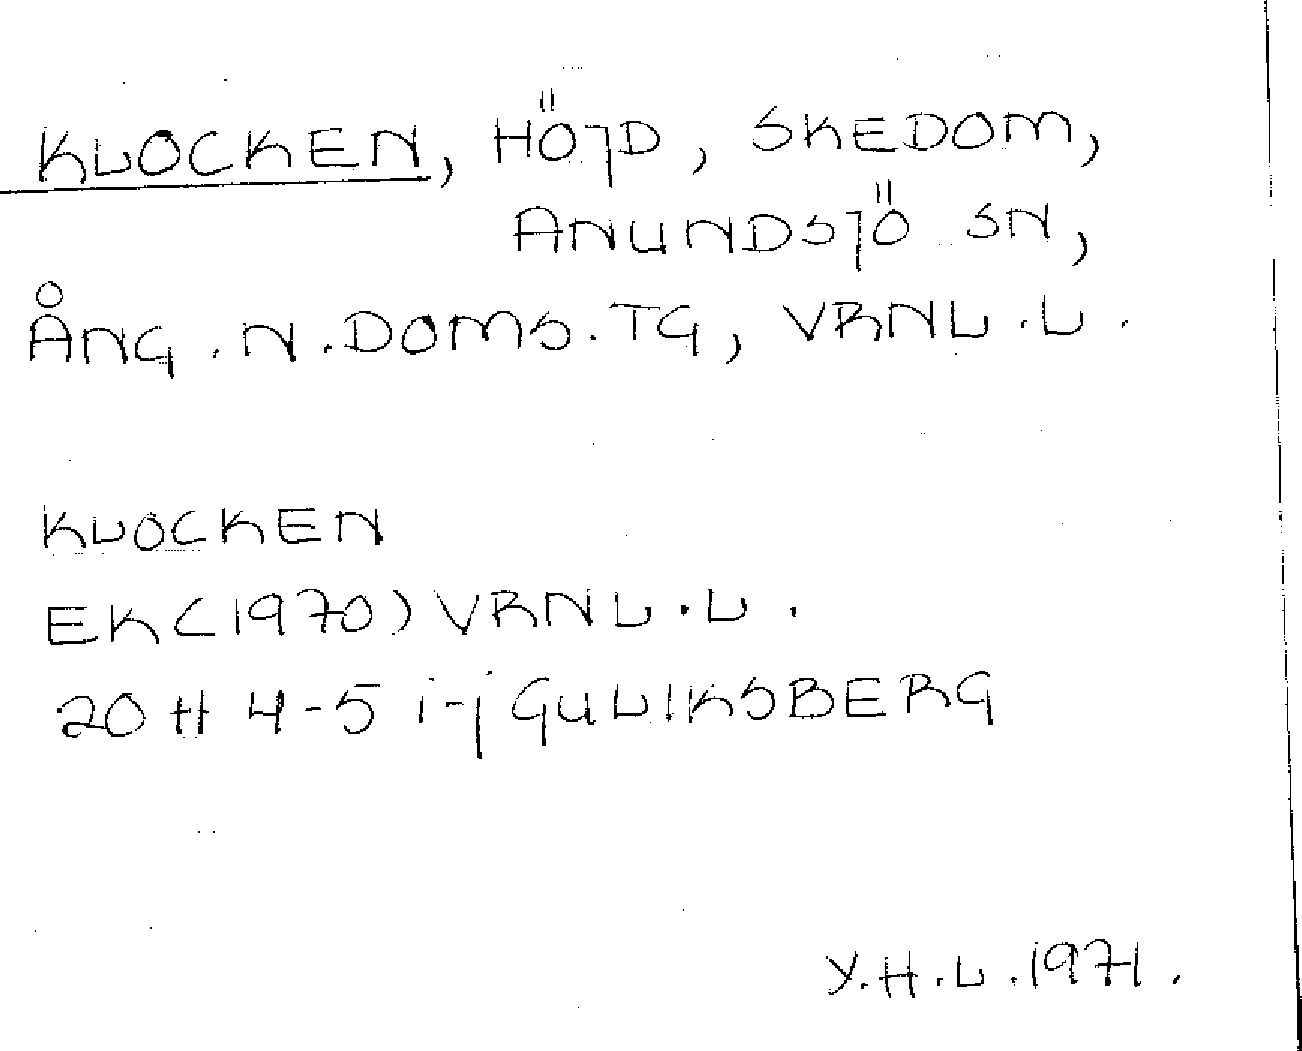 KLOCKEN, HÖJD, SKEDOM,
ANUNDSJÖ SN,
ÅNG. N. DOMS. TG, VRNL. L.
KLOCKEN
EK (1970) VRNL. L.
20 H 4-5 i-j GULIKSBERG
Y. H. L. 1971.